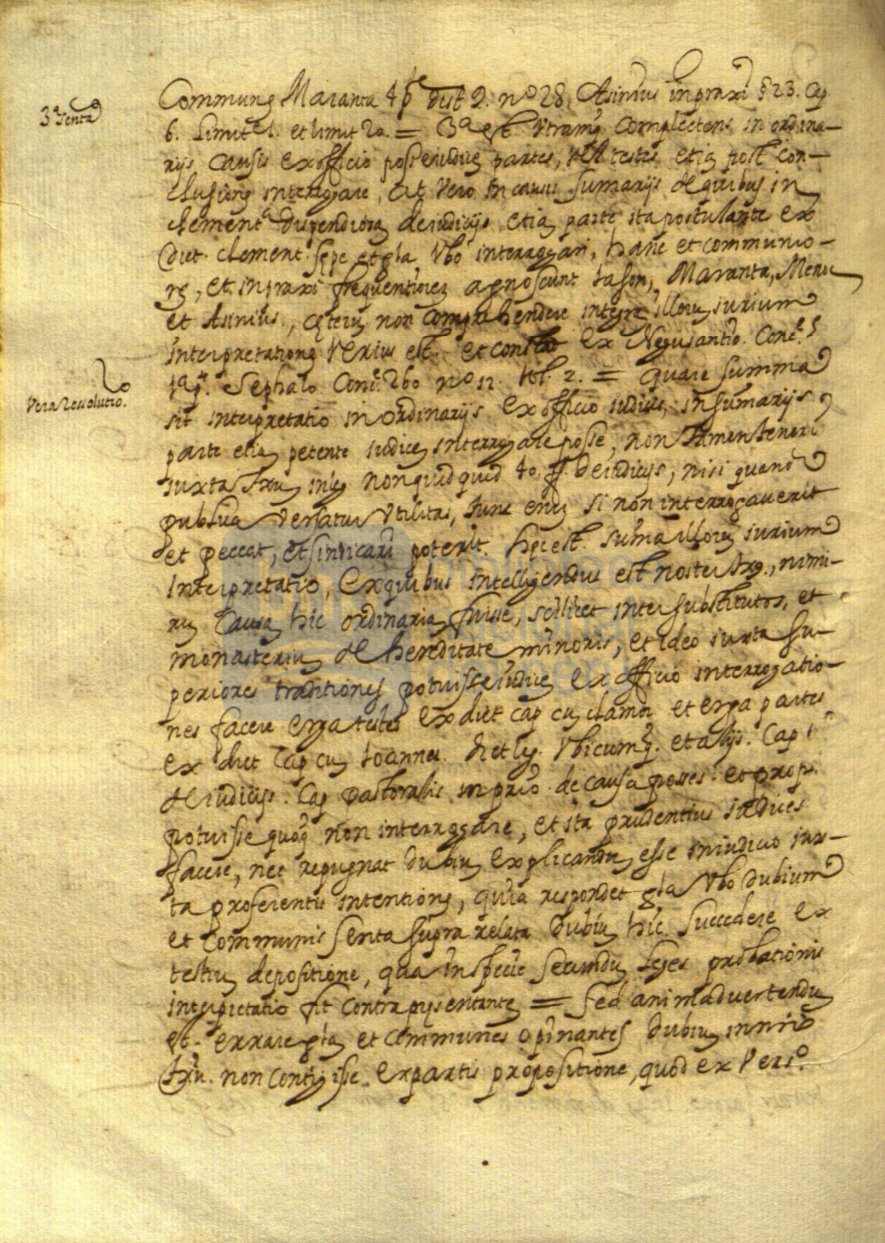 3ª senta
Communẽ Maranta 4 p̃te dist 9. nº 28. Asinius in praxi § 23. Cap
6. Limit 1. et limit 20. = 3ª est. Utramq. Complectens in ordina-
rijs causis ex officio posse iudicẽ partes, vel testes etiã post con-
clusionẽ interrogare, at vero in causis sumarijs de quibus in
clementª dispendiosã de iudicijs etiã parte ita postulante ex
dict. clement. sepe et gla Vbo interrogari, hanc et communio-
rẽ, et in praxi frequentiorẽ agnoscunt Iason, Maranta,
et Asinius, cęterũ non comprehendere integrẽ illorũ iurium
interpretationẽ Verius est. et constat ex Negusantio. Conc.
Cephalo Conc. 260 nº 12. Vol. 2. = quare summa
Vera resolutio.
sit interpretatio in ordinarijs ex officio iudicis, in sumarijs
parte etiã petente iudicẽ interrogare posse, non tamen teneri
iuxta txũ in leg non quidquid 40. ff. de iudicijs, nisi quando
publica versatur Utilitas, tunc enim si non interrogaverit
et peccat, et sindicari poterit. hęc est. suma illorũ iurium
interpretatio, ex quibus intelligendus est noster txꝰ, nimi-
rũ Causã hic ordinariã fuisse, scilicet inter substitutos, et
monasteriũ de hereditate minoris, et ideo iuxta su-
periores traditiones potuisse iudicẽ ex officio interrogatio-
nes facere erga testes ex dict cap cũ clamor et erga partes
ex dict Cap cũ Ioannes. dict leg. Vbicumq. et alijs. Cap 1.
de iudicijs. Cap pastoralis in prio. de causa posses. et propr.
potuisse quoq non interrogare, et ita prudentius iudices
facere, nec repugnat dubiũ explicandũ esse in iudicio iux-
ta proferentis intentionẽ, quia respondet gla Vbo dubium
et Communis senta supra relata dubiũ hic. succedere ex
testiũ depositione, qua in specie secundũ leges probationis
interpretatio fit contra pręsentantẽ = sed animadvertendũ
est. errare gla et communes opinantes dubiũ in nrõ
txũ. non contigisse ex partis propositione, quod ex Versº.